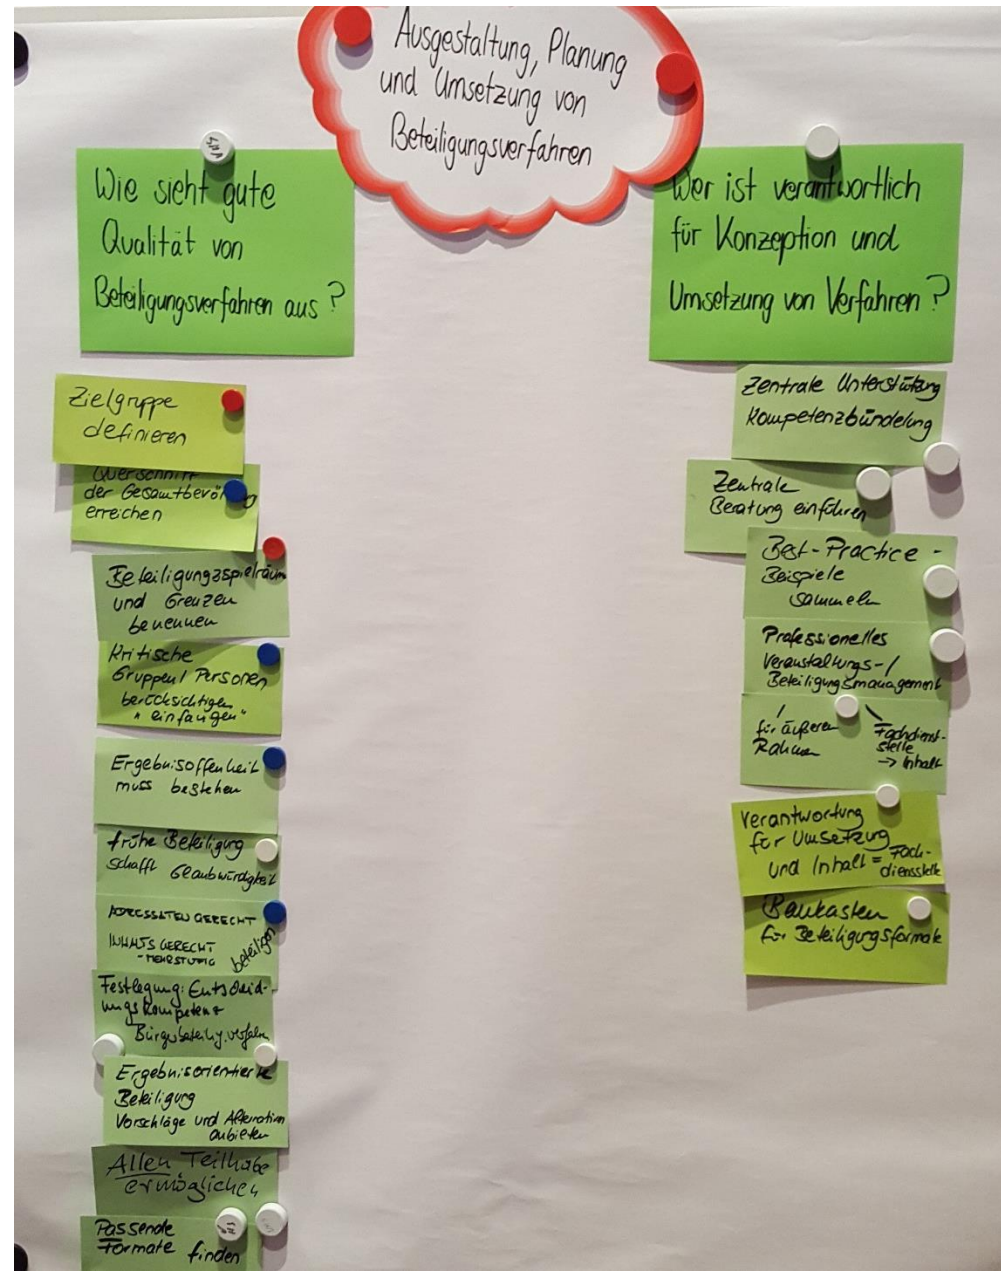 Ausgestaltung, Planung
und Umsetzung von
Beteiligungsverfahren
Wie sieht gute
Qualität von
Beteiligungsverfahren aus?
Zielgruppe
definieren
Querschnitt
der Gesamtbevölkerung
erreichen
Beteiligungsspielräum
und Grenzen
benennen
Kritische
Gruppen / Personen
berücksichtigen
"einfangen"
Ergebnisoffenheit
muss bestehen
frühe Beteiligung
schafft Glaubwürdigkeit
ADRESSATEN GERECHT
INHALTS GERECHT
- MEHRSTUFIG
beteiligen
Festlegung: Entscheid-
ungskompetenz
Bürgerbeteilig.verfahren
Ergebnisorientierte
Beteiligung
Vorschläge und Alternativen
anbieten
Allen Teilhabe
ermöglichen
Passende
Formate finden
Wer ist verantwortlich
für Konzeption und
Umsetzung von Verfahren?
Zentrale Unterstützung
Kompetenzbündelung
Zentrale
Beratung einführen
Best-Practice-
Beispiele
sammeln
Professionelles
Veranstaltungs-/
Beteiligungsmanagement
für äußeren
Rahmen
Fachdienst-
stelle
-> Inhalt
Verantwortung
für Umsetzung
und Inhalt = Fach-
diensstelle
Baukasten
für Beteiligungsformate